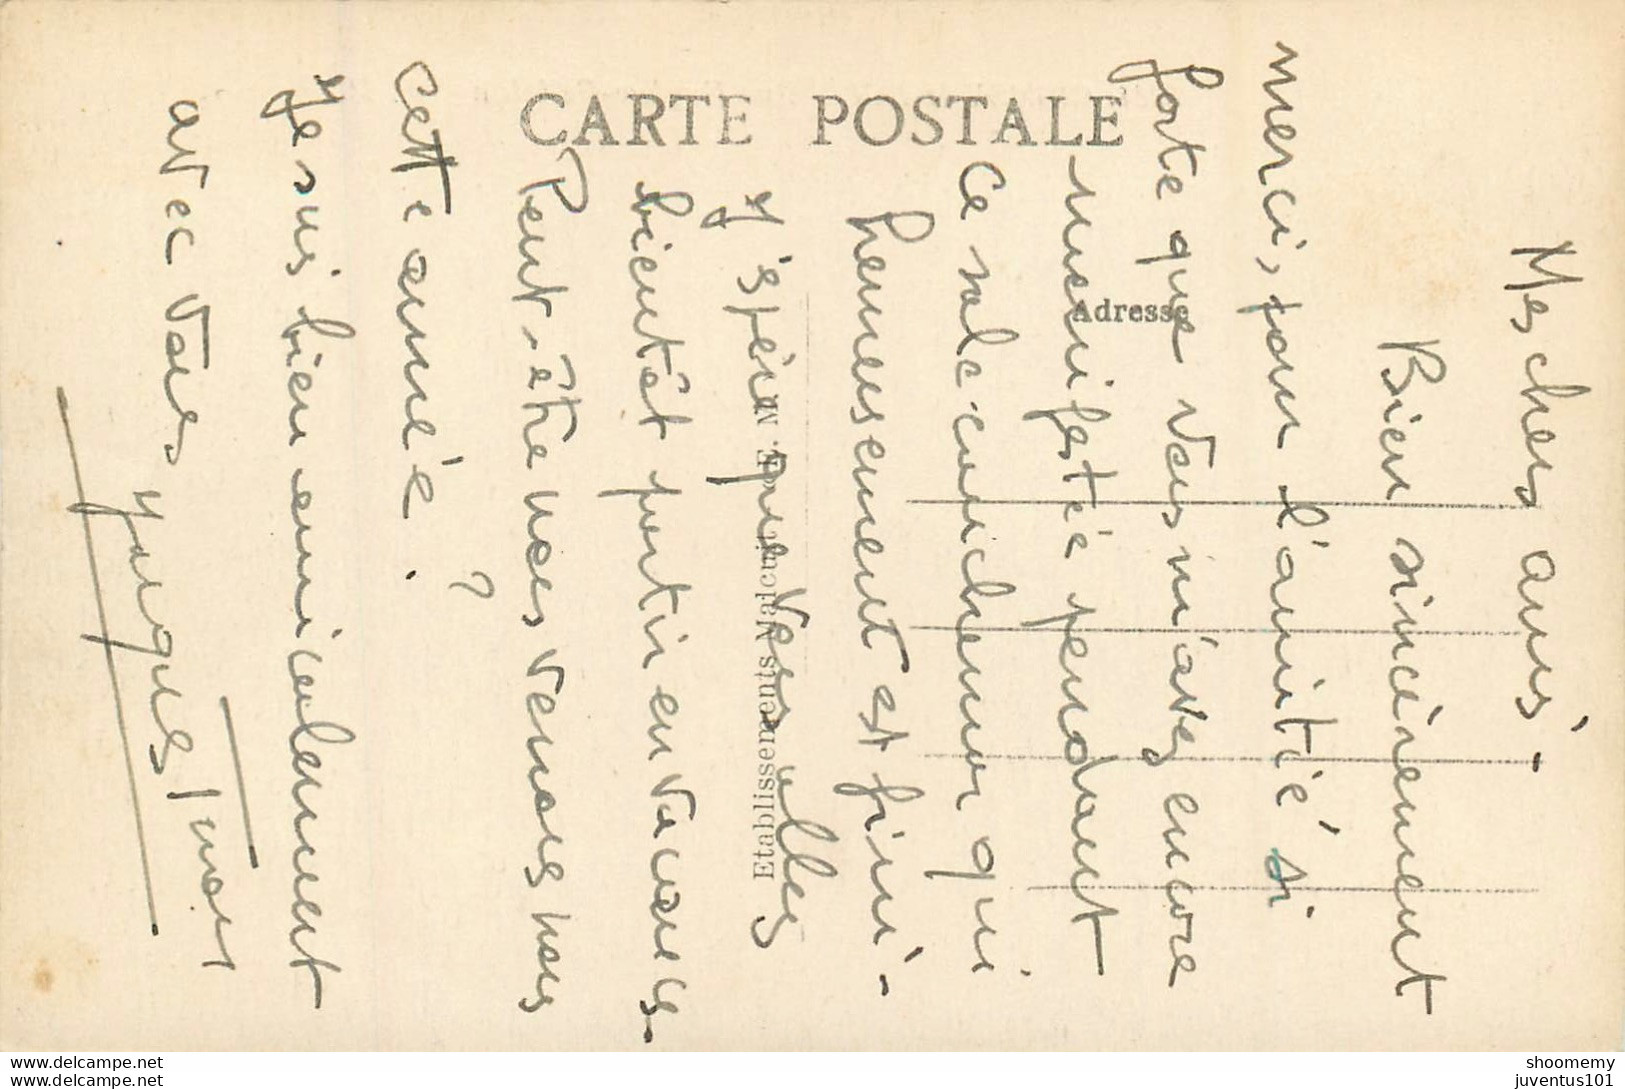 CARTE POSTALE
Adresse
Mes chers amis. -
Bien sincèrement
merci, pour l'amitié si
forte que vous m'avez encore
manifesté pendant
ce sale cauchemar qui
heureusement est fini. -
J'espère que vous allez
bientôt partir en vacances.
Peut-être nous verrons nous
cette année. ?
Je suis bien amicalement
avec vous Jacques
Etablissements Malcuit
delcampe.net
shoomemy
delcampe.net
juventus101